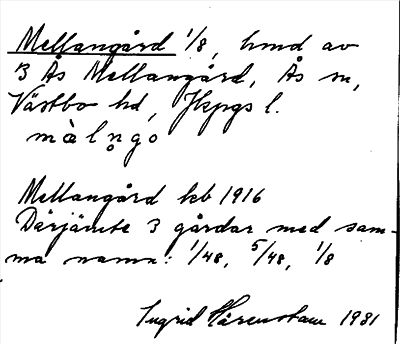 Mellangård 1/8, hmd av
3 Ås Mellangård, Ås sn,
Västbo hd, Jkpgs l.
màlṇgo
Mellangård kb 1916
Därjämte 3 gårdar med sam-
ma namn: 1/48, 5/48, 1/8
Ingrid Hårenstam 1981